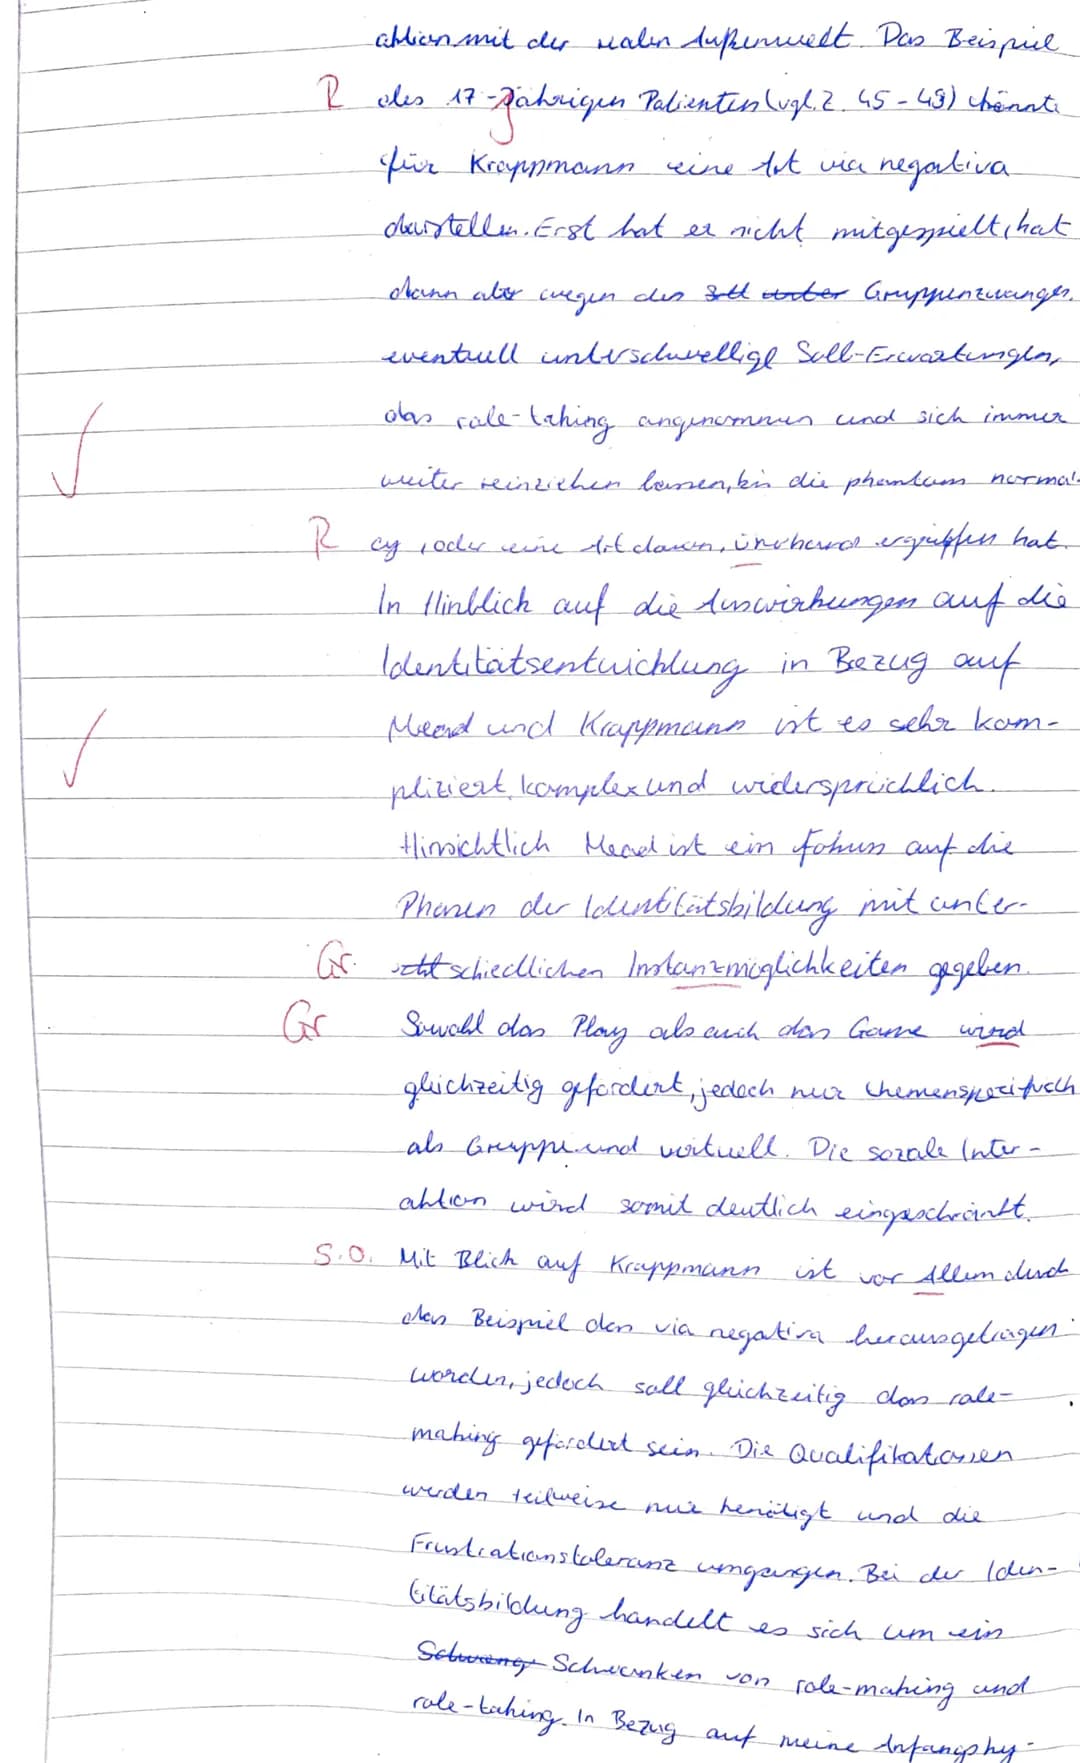 aktion mit der realen Außenwelt. Das Beispiel
R des 17-Jährigen Patienten (vgl. Z. 45-49) könnte
für Krappmann eine Art via negativa
darstellen. Erst hat er nicht mitgespielt, hat
dann aber wegen des Gruppenzwanges,
eventuell unterschwellige Soll-Erwartungen,
das role-taking angenommen und sich immer
weiter reinziehen lassen, bis die phantom normal-
R cy, oder eine Art davon, ergriffen hat.
In Hinblick auf die Auswirkungen auf die
Identitätsentwicklung in Bezug auf
Mead und Krappmann ist es sehr kom-
pliziert, komplex und widersprüchlich.
Hinsichtlich Mead ist ein Fokus auf die
Phasen der Identitätsbildung mit unter-
Gr. schiedlichen Instanzmöglichkeiten gegeben.
Gr Sowohl das Play als auch das Game wird
gleichzeitig gefordert, jedoch nur themenspezifisch
als Gruppe und virtuell. Die sozale Inter-
aktion wird somit deutlich eingeschränkt.
S.O. Mit Blick auf Krappmann ist vor Allem durch
das Beispiel das via negativa herausgetragen
worden, jedoch soll gleichzeitig das role-
making gefördert sein. Die Qualifikationen
werden teilweise nur benötigt und die
Frustrationstoleranz umgangen. Bei der Iden-
titätsbildung handelt es sich um ein
Schwang Schwanken von role-making und
role-taking. In Bezug auf meine Anfangshy-